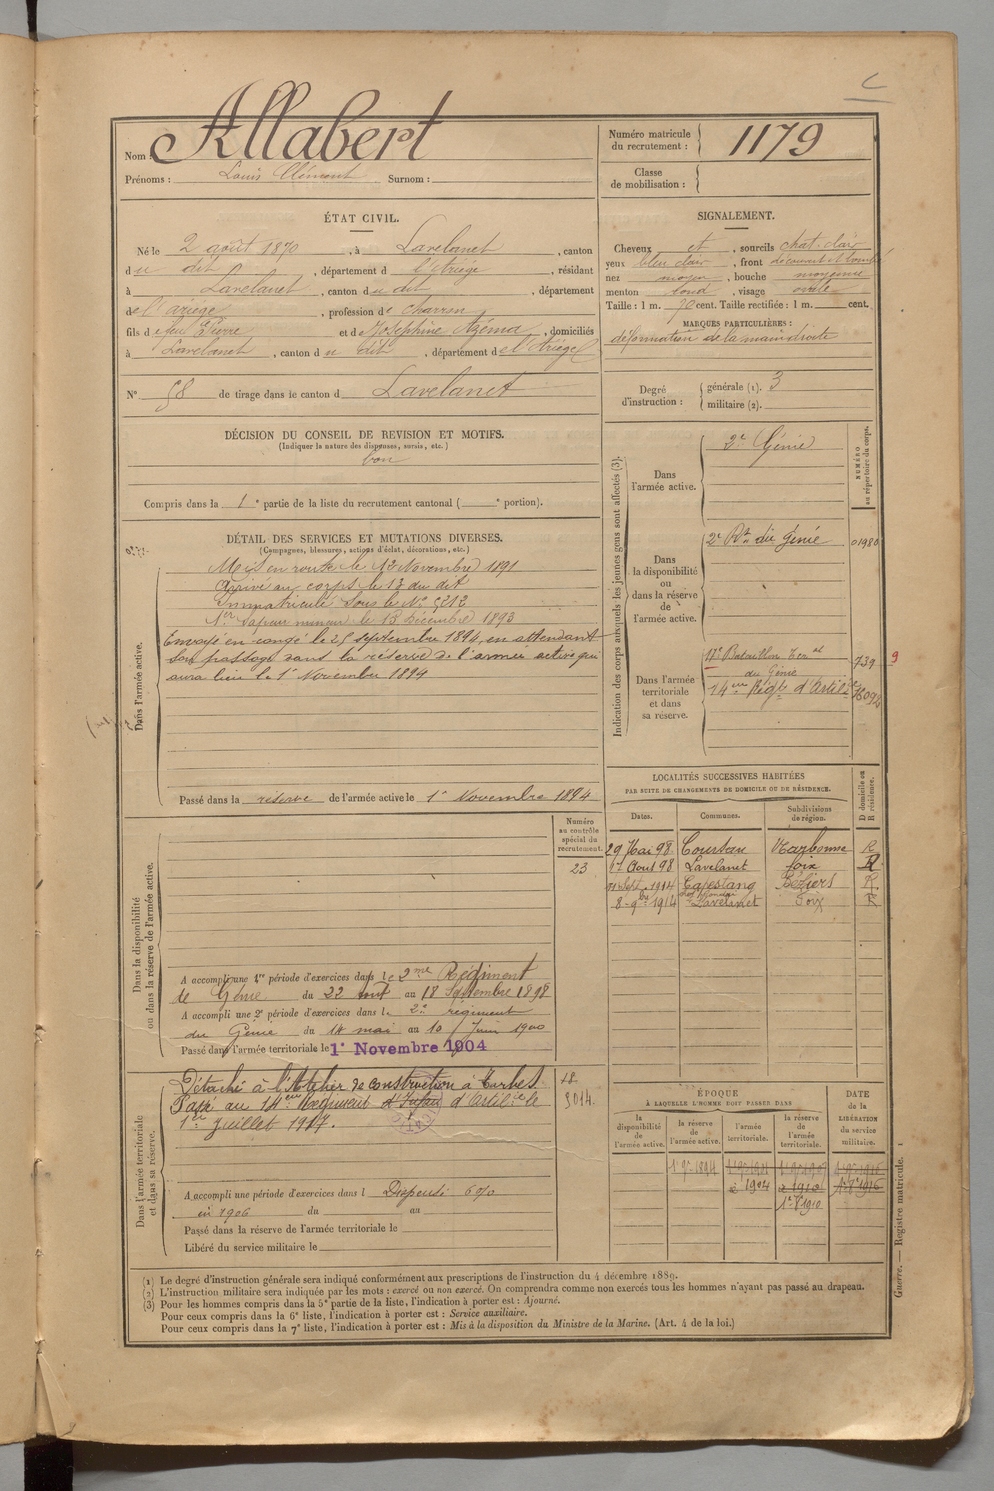 Nom : Allabert
Prénoms : Louis Clément Surnom :
Numéro matricule du recrutement : 1179
Classe de mobilisation :
ÉTAT CIVIL.
Né le 2 août 1870, à Lavelanet, canton
du dit, département d l'Ariège, résidant
à Lavelanet, canton du dit, département
de l'ariège, profession de charron
fils de feu Pierre et de Joséphine Azéma, domiciliés
à Lavelanet, canton du dit, département de l'Ariège
N° 58 de tirage dans le canton d Lavelanet
SIGNALEMENT.
Cheveux et, sourcils chat. clair
yeux bleu clair, front découvert et bombé
nez moyen, bouche moyenne
menton rond, visage ovale
Taille : 1 m. 70 cent. Taille rectifiée : 1 m. cent.
MARQUES PARTICULIÈRES :
déformation de la main droite
Degré d'instruction : générale (1). 3
militaire (2).
DÉCISION DU CONSEIL DE REVISION ET MOTIFS.
(Indiquer la nature des dispenses, sursis, etc.)
bon
Compris dans la 1e partie de la liste du recrutement cantonal ( e portion).
DÉTAIL DES SERVICES ET MUTATIONS DIVERSES.
(Campagnes, blessures, actions d'éclat, décorations, etc.)
Dans l'armée active.
Mis en route le 13 Novembre 1891
Arrivé au corps le 13 du dit
Immatriculé sous le N° 5212
1er Sapeur mineur le 13 Décembre 1893
Envoyé en congé le 25 septembre 1894, en attendant
son passage dans la réserve de l'armée active qui
aura lieu le 1r Novembre 1894
Passé dans la réserve de l'armée active le 1r Novembre 1894
Indication des corps auxquels les jeunes gens sont affectés (3).
NUMÉRO au répertoire du corps.
Dans l'armée active.
2e Génie
Dans la disponibilité ou dans la réserve de l'armée active.
2e Rt du Génie 01980
Dans l'armée territoriale et dans sa réserve.
17e Bataillon Terral 739 9
du Génie
14eme Régt d'Artil
LOCALITÉS SUCCESSIVES HABITÉES
PAR SUITE DE CHANGEMENTS DE DOMICILE OU DE RÉSIDENCE.
Dates. Communes. Subdivisions de région. D domicile ou R résidence.
29 Mai 98 Coursan Narbonne R
Aout 98 Lavelanet foix R
Sept. 1914 Capestang Béziers R
8 - 9bre 1914 Lavelanet Foix R
Numéro au contrôle spécial du recrutement.
23
Dans la disponibilité ou dans la réserve de l'armée active.
A accompli une 1re période d'exercices dans le 2me Régiment
de Génie du 22 août au 18 Septembre 1898
A accompli une 2e période d'exercices dans l 2e régiment
du Génie du 14 mai au 10 Juin 1900
Passé dans l'armée territoriale le 1r Novembre 1904
Dans l'armée territoriale et dans sa réserve.
Détaché à l'Atelier de construction à Tarbes.
Passé au 14eme Régiment d'Artil le
1er Juillet 1917.
3014.
A accompli une période d'exercices dans l Dispensé 6 %
en 1906 du au
Passé dans la réserve de l'armée territoriale le
Libéré du service militaire le
ÉPOQUE
À LAQUELLE L'HOMME DOIT PASSER DANS
la disponibilité de l'armée active. la réserve de l'armée active. l'armée territoriale. la réserve de l'armée territoriale.
DATE de la LIBÉRATION du service militaire.
(1) Le degré d'instruction générale sera indiqué conformément aux prescriptions de l'instruction du 4 décembre 1889.
(2) L'instruction militaire sera indiquée par les mots : exercé ou non exercé. On comprendra comme non exercés tous les hommes n'ayant pas passé au drapeau.
(3) Pour les hommes compris dans la 5e partie de la liste, l'indication à porter est : Ajourné.
Pour ceux compris dans la 6e liste, l'indication à porter est : Service auxiliaire.
Pour ceux compris dans la 7e liste, l'indication à porter est : Mis à la disposition du Ministre de la Marine. (Art. 4 de la loi.)
Guerre. — Registre matricule. 1